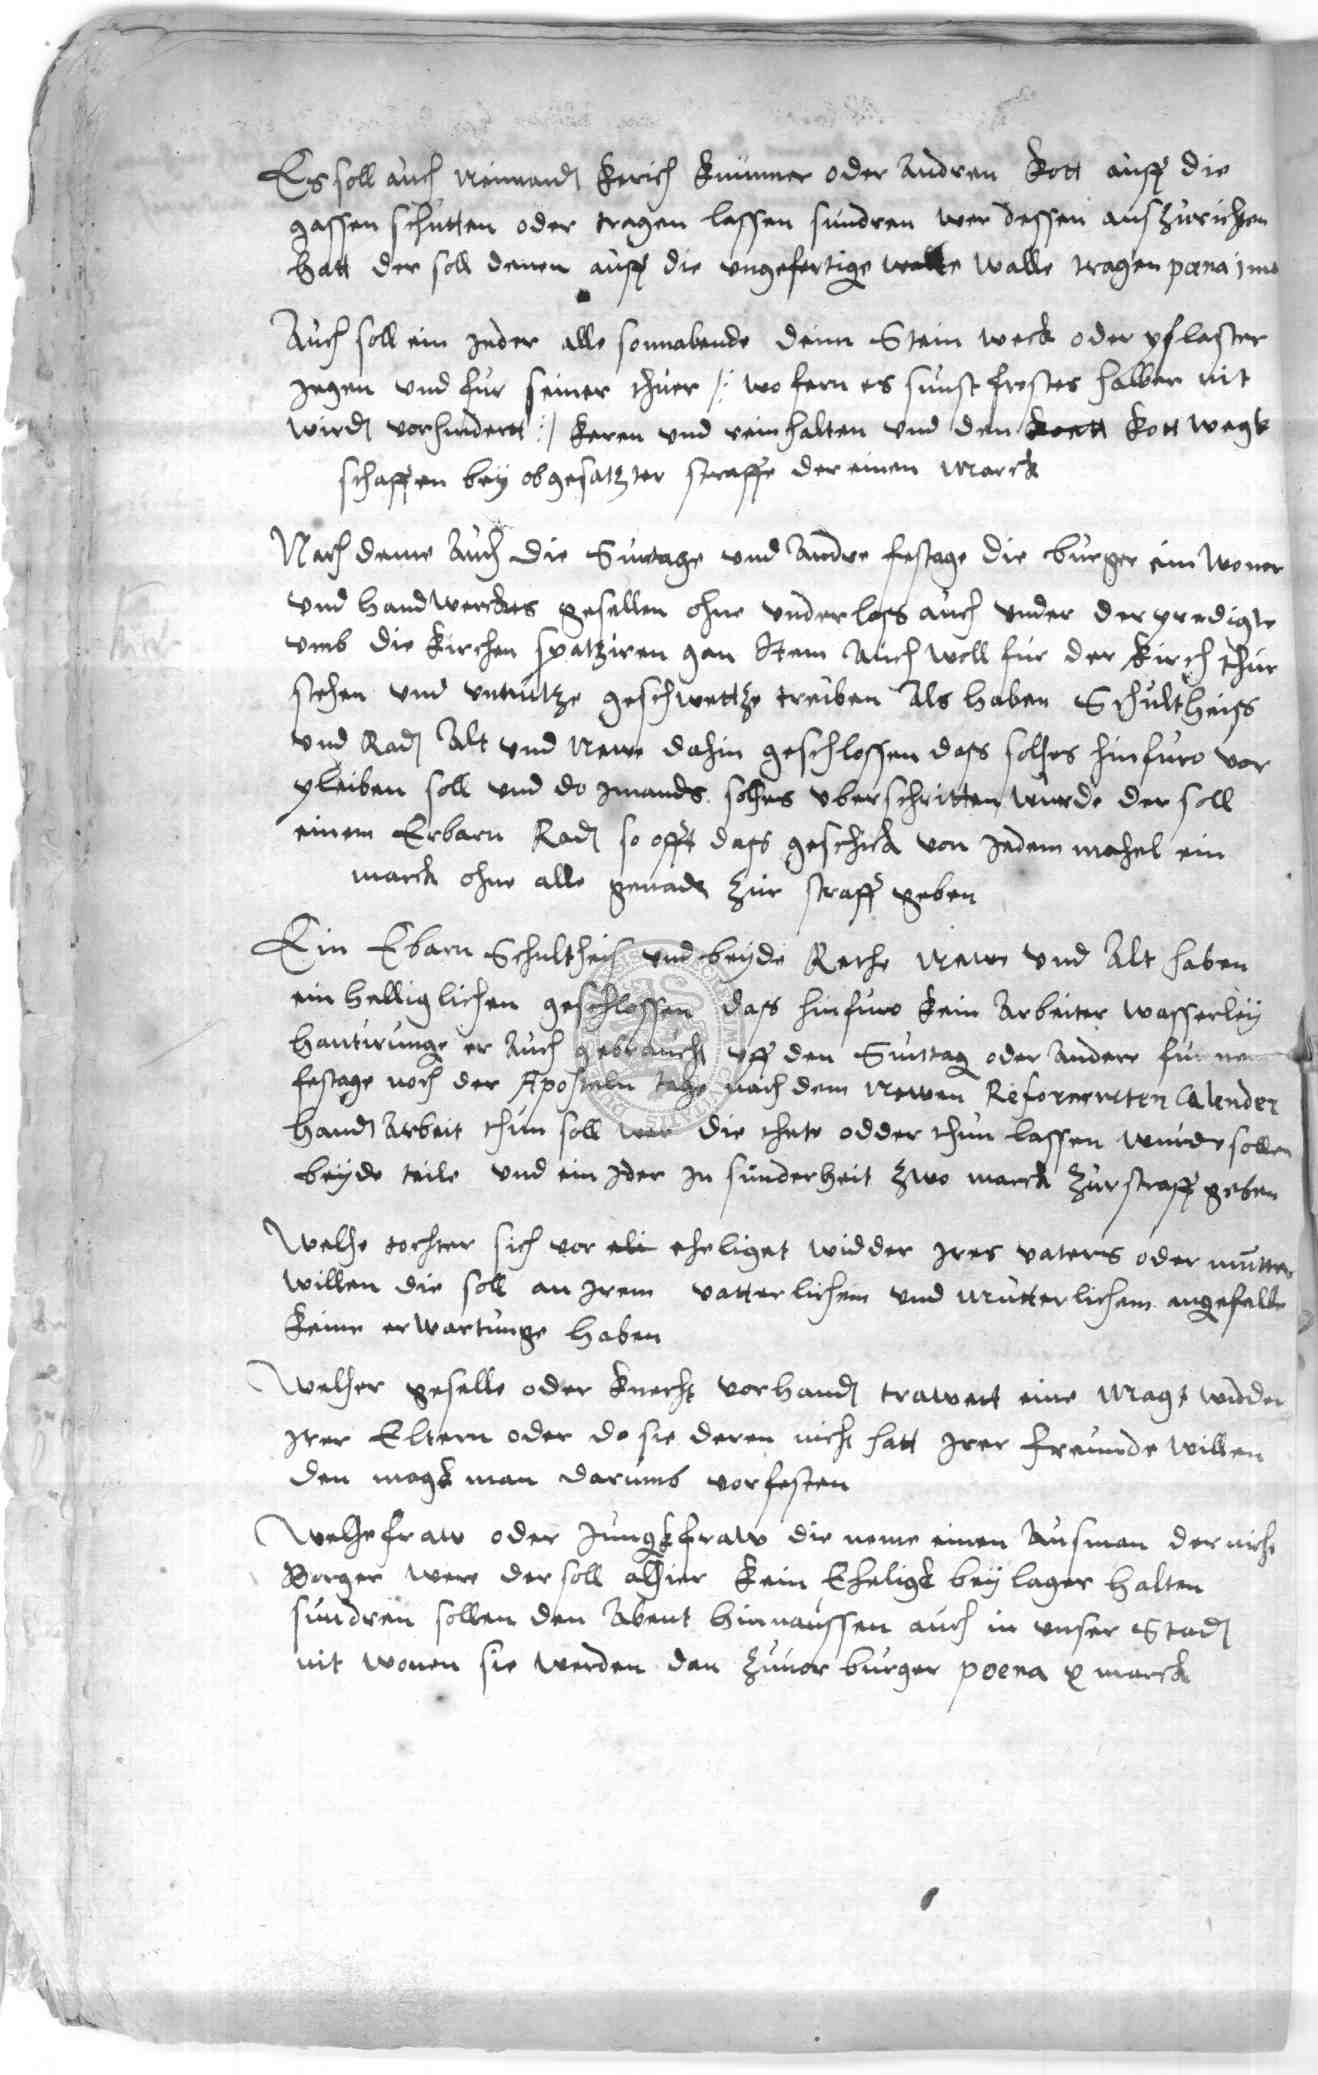 Es soll auch Niemandt kerich kummer oder Andren kott auff die
gassen schutten oder tragen lassen sundren wer dessen auszurichten
hatt der soll denen auff die ungefertige walle tragen poena 1 mr
Auch soll ein jeder alle sonnabende denn Stein weck oder pflaster
jegen und fur seiner thuer /: wo fern es sunst frostes halber nit
wirdt vorhindertt :/ keren und rein halten und den kott wegk
schaffen bey obgesatzter straffe der einen Marck
Nach deme Auch die Suntage und Andre festage die burger ein woner
und handwerckes gesellen ohne underlass auch under der predigte
umb die kirchen spatziren gan Item Auch woll fur der kirch thur
stehen und unnutze geschwettze treiben Als haben Schultheiss
und Radt Alt und Newe dahin geschlossen dass solhes hinfuro vor
pleiben soll und do jmands solhes uberschritten wurde der soll
einem Erbarn Radt so offt dass geschickt von jedem mahel ein
marck ohne alle genade zur straff geben
Ein Ebarn Schultheis und beyde Rethe Newe und Alt haben
ein helliglichen geschlossen dass hinfuro kein Arbeiter wasserley
hantirunge er Auch gebraucht uff den Suntag oder Andere
festage noch der Aposteln tage nach dem Newen Reformerten Calender
handt Arbeit thun soll wer die thete odder thun lassen wurde sollen
beyde teile und ein jder in sunderheit zwo marck zur straff geben
Welhe tochter sich vor ehliget widder jres vaters oder mutter
willen die soll an jrem vatterlichem und Mutterlichem angefalle
keine erwartunge haben
Welher geselle oder knecht vorhandt trawett eine Magt widder
jrer Eltern oder do sie deren nicht hatt jrer freunde willen
den magk man darumb vorfesten
Welhe fraw oder Jungkfraw die neme einen Ausman der nicht
Borger were der soll alhier kein Eheligk bey lager halten
sundren sollen den Abent hinnaussen auch in unser Stadt
nit wonen sie werden dan zuvor burger poena x marck